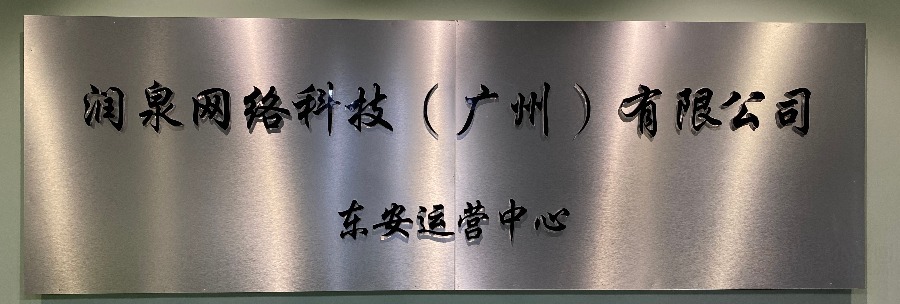 润泉网络科技（广州）有限公司
东安运营中心